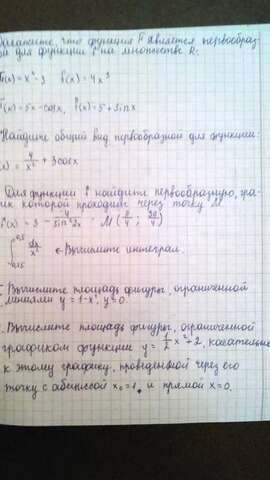 что функция F является первообраз-
й для функции f на множестве R:
F(x) = x⁴ - 3 f(x) = 4x³
F(x) = 5x - cosx, f(x) = 5 + sinx
Найдите общий вид первообразной для функции:
(x) = 4/x² + 3cosx
Для функции f найдите первообразную, гра-
ик которой проходит через точку M
f(x) = 3 - 4/sin²2x M
dx/x² ← Вычислите интеграл.
Вычислите площадь фигуры, ограниченной
линиями y = 1 - x², y = 0.
Вычислите площадь фигуры, ограниченной
графиком функции y = 1/2 x² + 2, касательной
к этому графику, проведённой через его
точку с абсциссой x₀ = 1, и прямой x = 0.